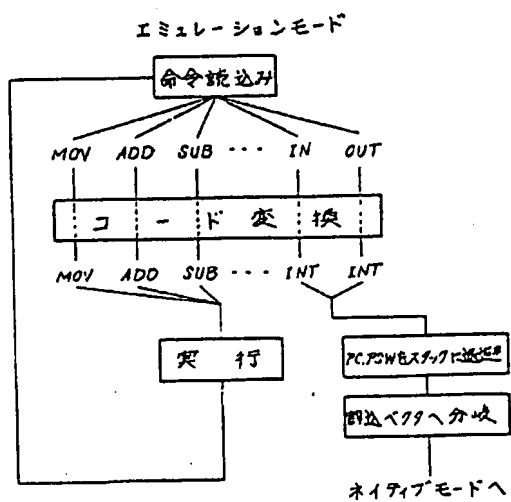 エミュレーションモード
命令読込み
MOV ADD SUB ··· IN OUT
コード変換
MOV ADD SUB ··· INT INT
実行
PC.PSWをスタックに退避
割込ベクタへ分岐
ネイティブモードへ